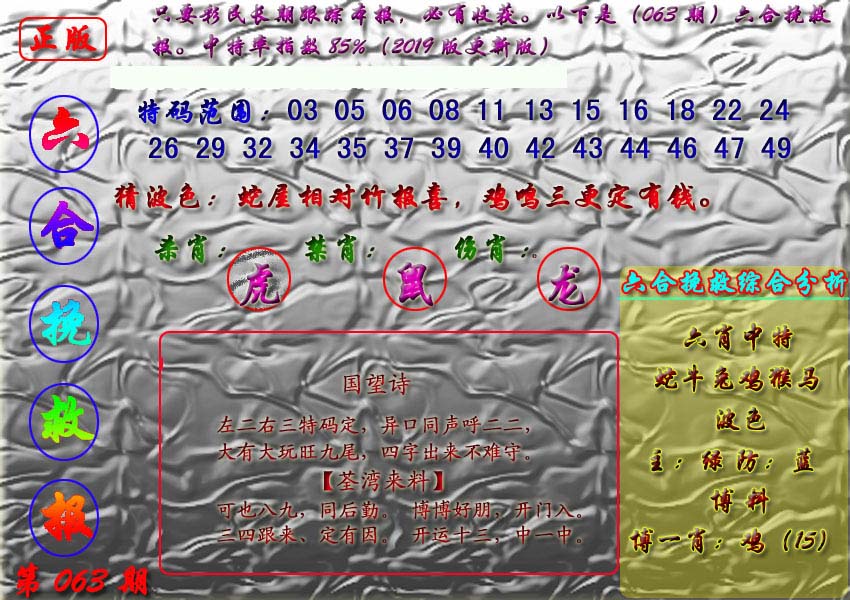 正版
只要彩民长期跟踪本报，必有收获。以下是（063期）六合挽救
报。中特率指数85%（2019版更新版）
六合挽救报
第063期
特码范围：03 05 06 08 11 13 15 16 18 22 24
26 29 32 34 35 37 39 40 42 43 44 46 47 49
猜波色：蛇屋相对竹报喜，鸡鸣三更定有钱。
杀肖：虎 禁肖：鼠 伤肖：龙。
国望诗
左二右三特码定，异口同声呼二二，
大有大玩旺九尾，四字出来不难守。
【荃湾来料】
可也八九，同后勤。 博博好朋，开门入。
二四跟来、定有因。 开运十三，中一中。
六合挽救综合分析
六肖中特
蛇牛兔鸡猴马
波色
主：绿防：蓝
博料
博一肖：鸡（15）